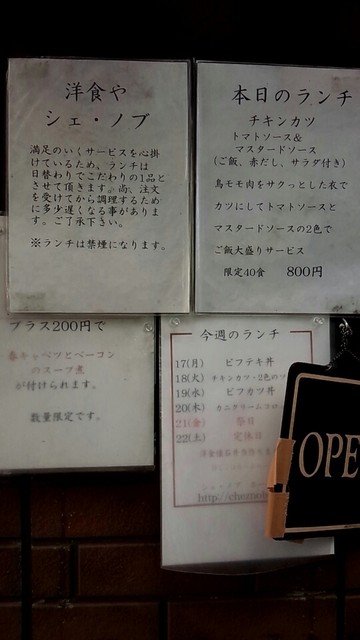 洋食や
シェ・ノブ
満足のいくサービスを心掛
けているため、ランチは
日替わりでこだわりの1品と
させて頂きます。尚、注文
を受けてから調理するため
に多少遅くなる事がありま
す。ご了承下さい。
※ランチは禁煙になります。
本日のランチ
チキンカツ
トマトソース&
マスタードソース
(ご飯、赤だし、サラダ付き)
鳥モモ肉をサクッとした衣で
カツにしてトマトソースと
マスタードソースの2色で
ご飯大盛りサービス
限定40食 800円
プラス200円で
春キャベツとベーコン
のスープ煮
が付けられます。
数量限定です。
今週のランチ
17(月) ビフテキ丼
18(火) チキンカツ・2色のソ
19(水) ビフカツ丼
20(木) カニクリームコロ
21(金) 祭日
22(土) 定休日
OPE